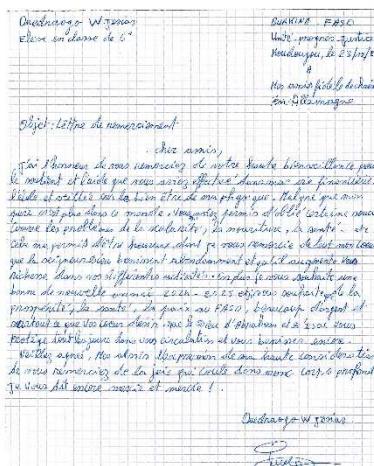 Ouedraogo W Jonas
Elève en classe de 6e
BURKINA FASO
Unité-progrès-justice
Koudougou, le 23/12/2
A
Mes amis fidèle de
En Allemagne
Objet : Lettre de remerciement
cher amis,
J'ai l'honneur de vous remercier de votre haute bienveillance pour
le soutient et l'aide que vous aviez effectué dans ma vie financière
l'école et veillé sur la bien être de ma physique. Malgré que mon
père n'est plus dans ce monde. Vous
comme les problèmes de la scolarité, la nourriture, la santé. etc
cela ma permis d'être heureux, dont je vous remercie de tout mon cœur
que le seigneur Dieu benissent abondamment et qu'il augmente vos
richesse dans vos différentes En plus je vous souhaite une
bonne de nouvelle année 2024-2025 et vous souhaite la
prospérité, la santé, la paix au FASO, beaucoup d'argent et
surtout a que vos cœurs désir. que le Dieu d'Abraham et d'Isaac vous
protège tout les jours dans vos circulation et vous benisse encore.
Veillez agréé, Mes l'expression de ma haute considération
de vous remerciez de la joie qui coule dans mone corps profond
Je vous dit encore merci et merci !
Ouedraogo W Jonas